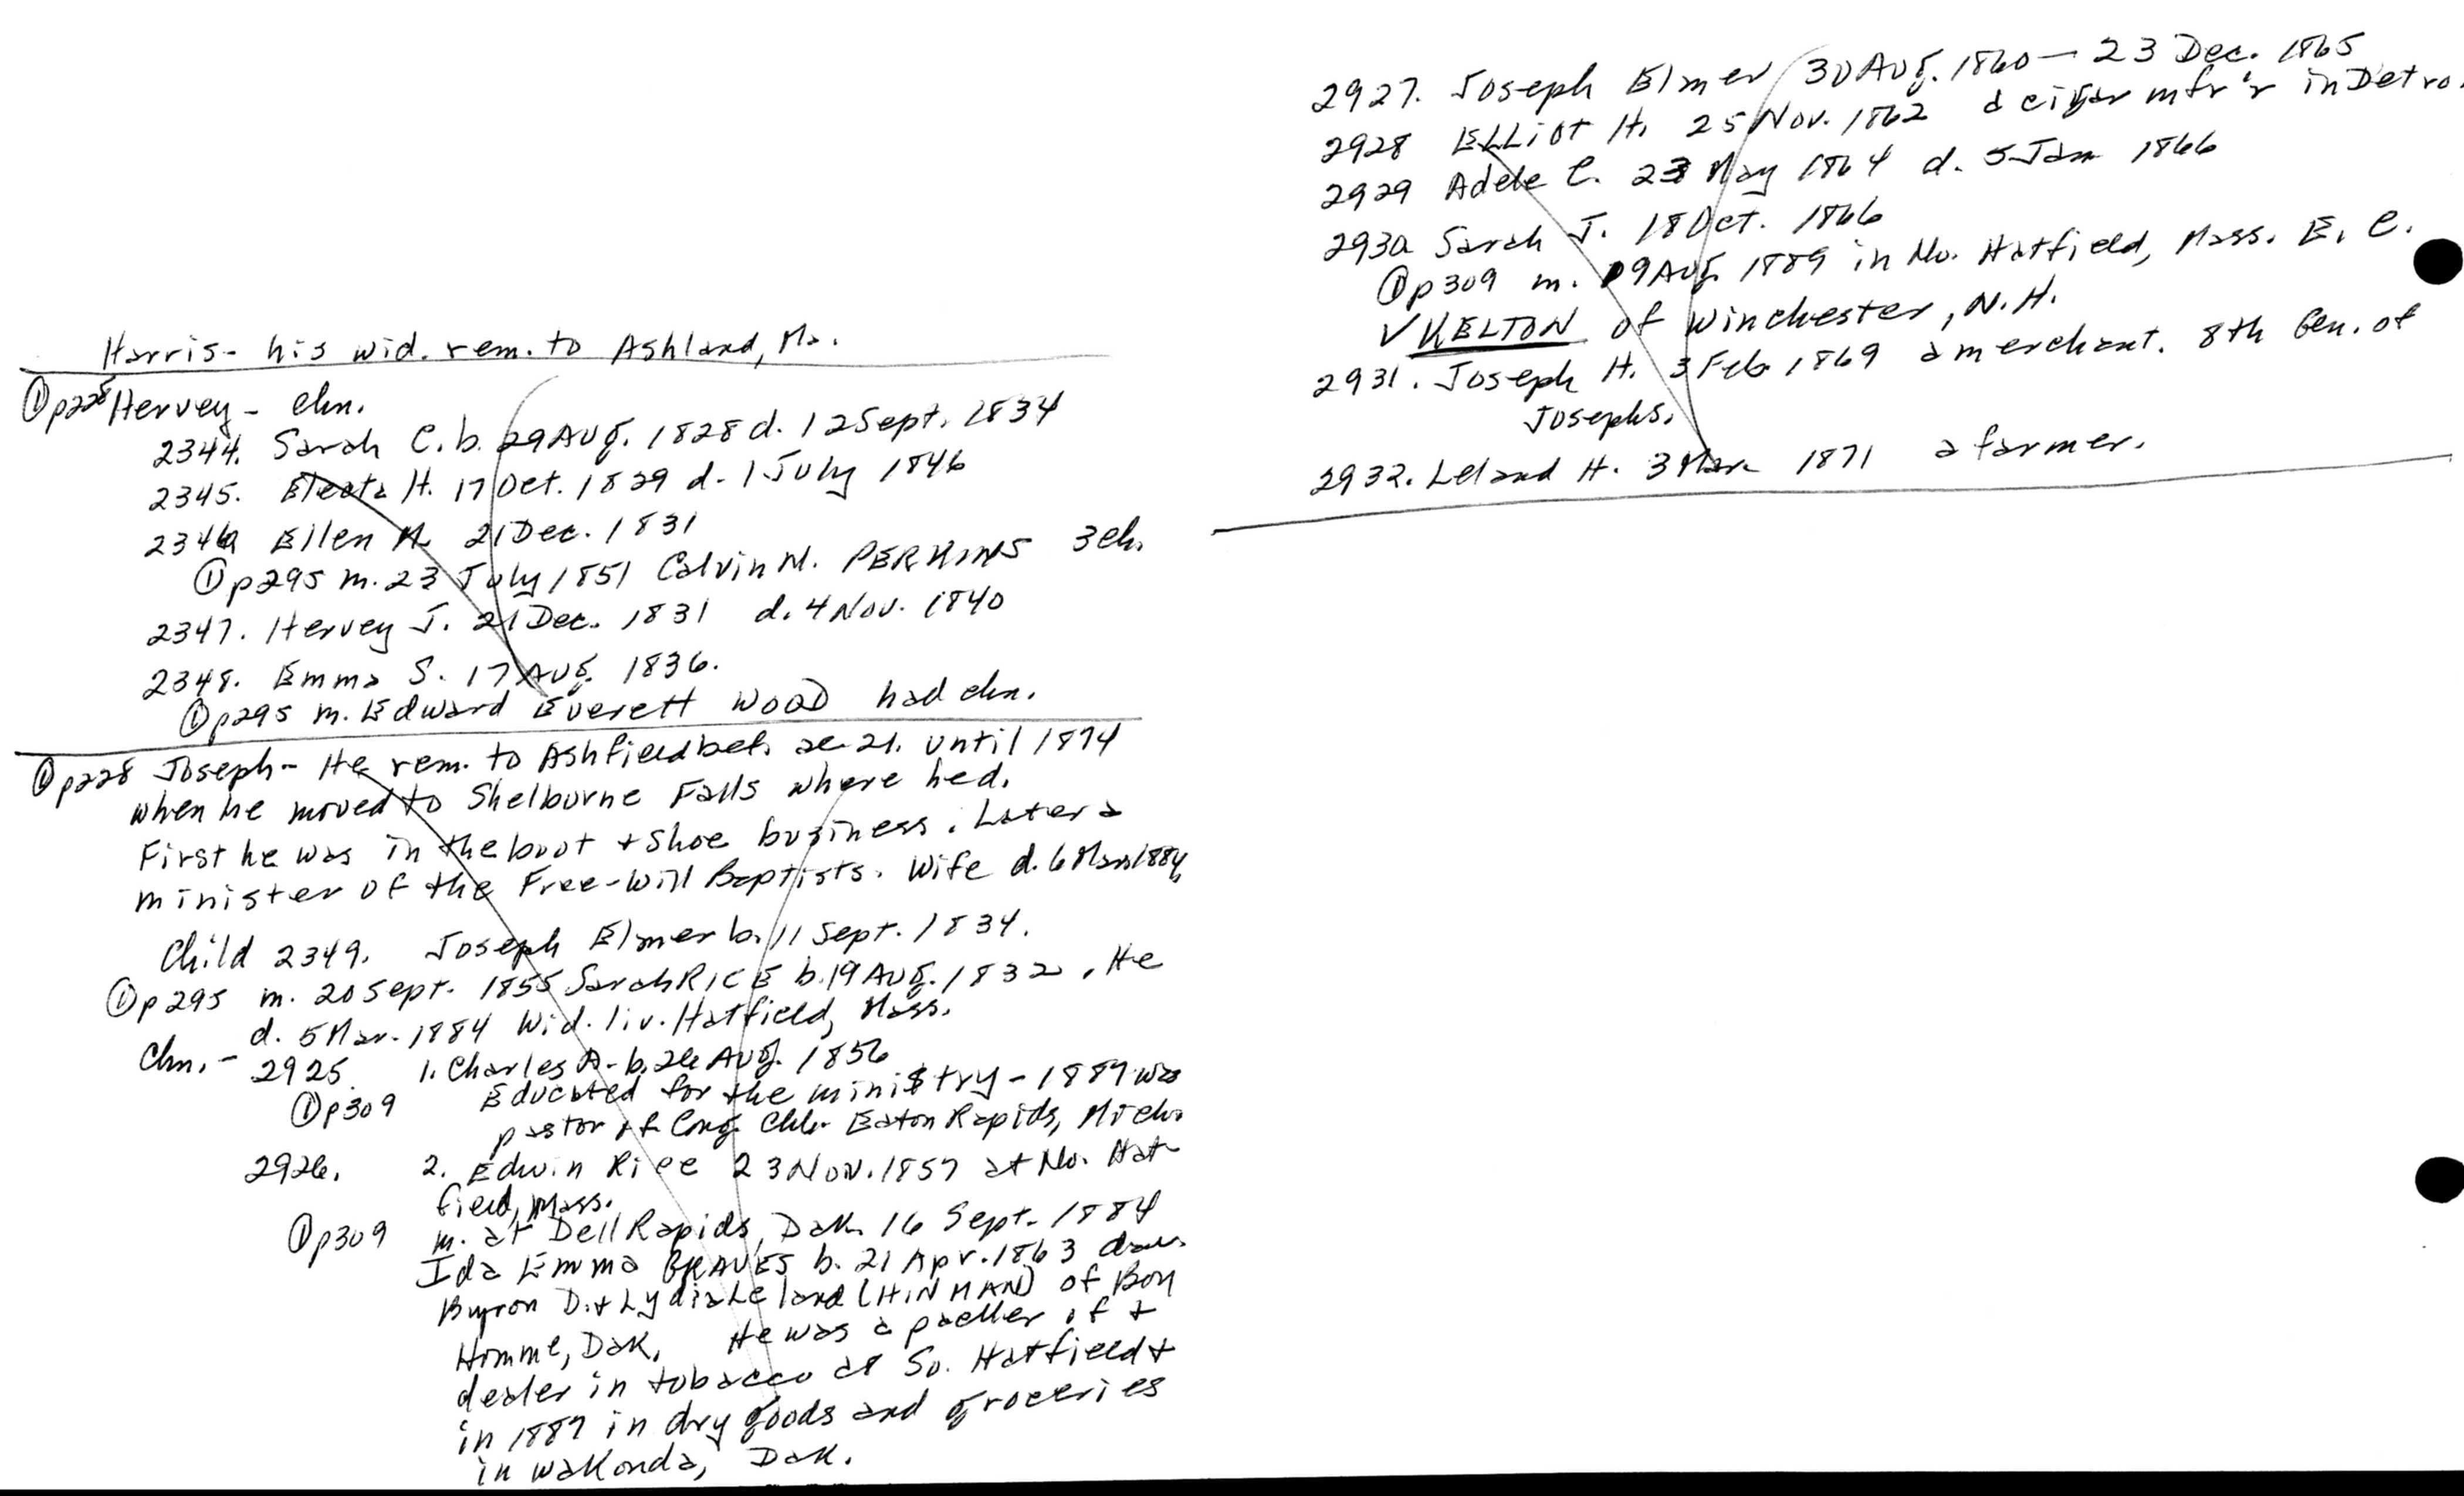 Harris - his wid. rem. to Ashland, Ma.
① p228 Hervey - chn.
2344. Sarah C. b. 29 Aug. 1828 d. 12 Sept. 1834
2345. Electa H. 17 Oct. 1829 d. 1 July 1846
2346 Ellen M. 21 Dec. 1831
① p295 m. 23 July 1851 Calvin M. PERKINS 3 ch.
2347. Hervey J. 21 Dec. 1831 d. 4 Nov. 1840
2348. Emma S. 17 Aug. 1836.
① p295 m. Edward Everett WOOD had chn.
① p228 Joseph - He rem. to Ashfield bef. ae 21. until 1874
when he moved to Shelburne Falls where he d.
First he was in the boot + shoe business. Later a
minister of the Free-Will Baptists. Wife d. 6 Mar 1884
Child 2349. Joseph Elmer b. 11 Sept. 1834.
① p295 m. 20 Sept. 1855 Sarah RICE b. 19 Aug. 1832. He
d. 5 Mar. 1884 Wid. liv. Hatfield, Mass.
Chn. - 2925 1. Charles A. b. 26 Aug. 1856
① p309 Educated for the ministry - 1889 was
pastor of Cong. Chh. Eaton Rapids, Mich.
2926. 2. Edwin Rice 23 Nov. 1857 at No. Hat-
field, Mass.
① p309 m. at Dell Rapids, Dak. 16 Sept. 1884
Ida Emma GRAVES b. 21 Apr. 1863 dau.
Byron D. + Lydia Leland (HINMAN) of Bon
Homme, Dak. He was a packer of +
dealer in tobacco at So. Hatfield +
in 1887 in dry goods and groceries
in Wakonda, Dak.
2927. Joseph Elmer 30 Aug. 1860 - 23 Dec. 1865
2928 Elliot H. 25 Nov. 1862 a cigar mfr'r in Detro
2929 Adele C. 23 May 1864 d. 5 Jan 1866
2930 Sarah J. 18 Oct. 1866
① p309 m. 9 Aug. 1889 in No. Hatfield, Mass. E. C.
✓ KELTON of Winchester, N.H.
2931. Joseph H. 3 Feb 1869 a merchant. 8th Gen. of
Josephs.
2932. Leland H. 3 Mar 1871 a farmer.